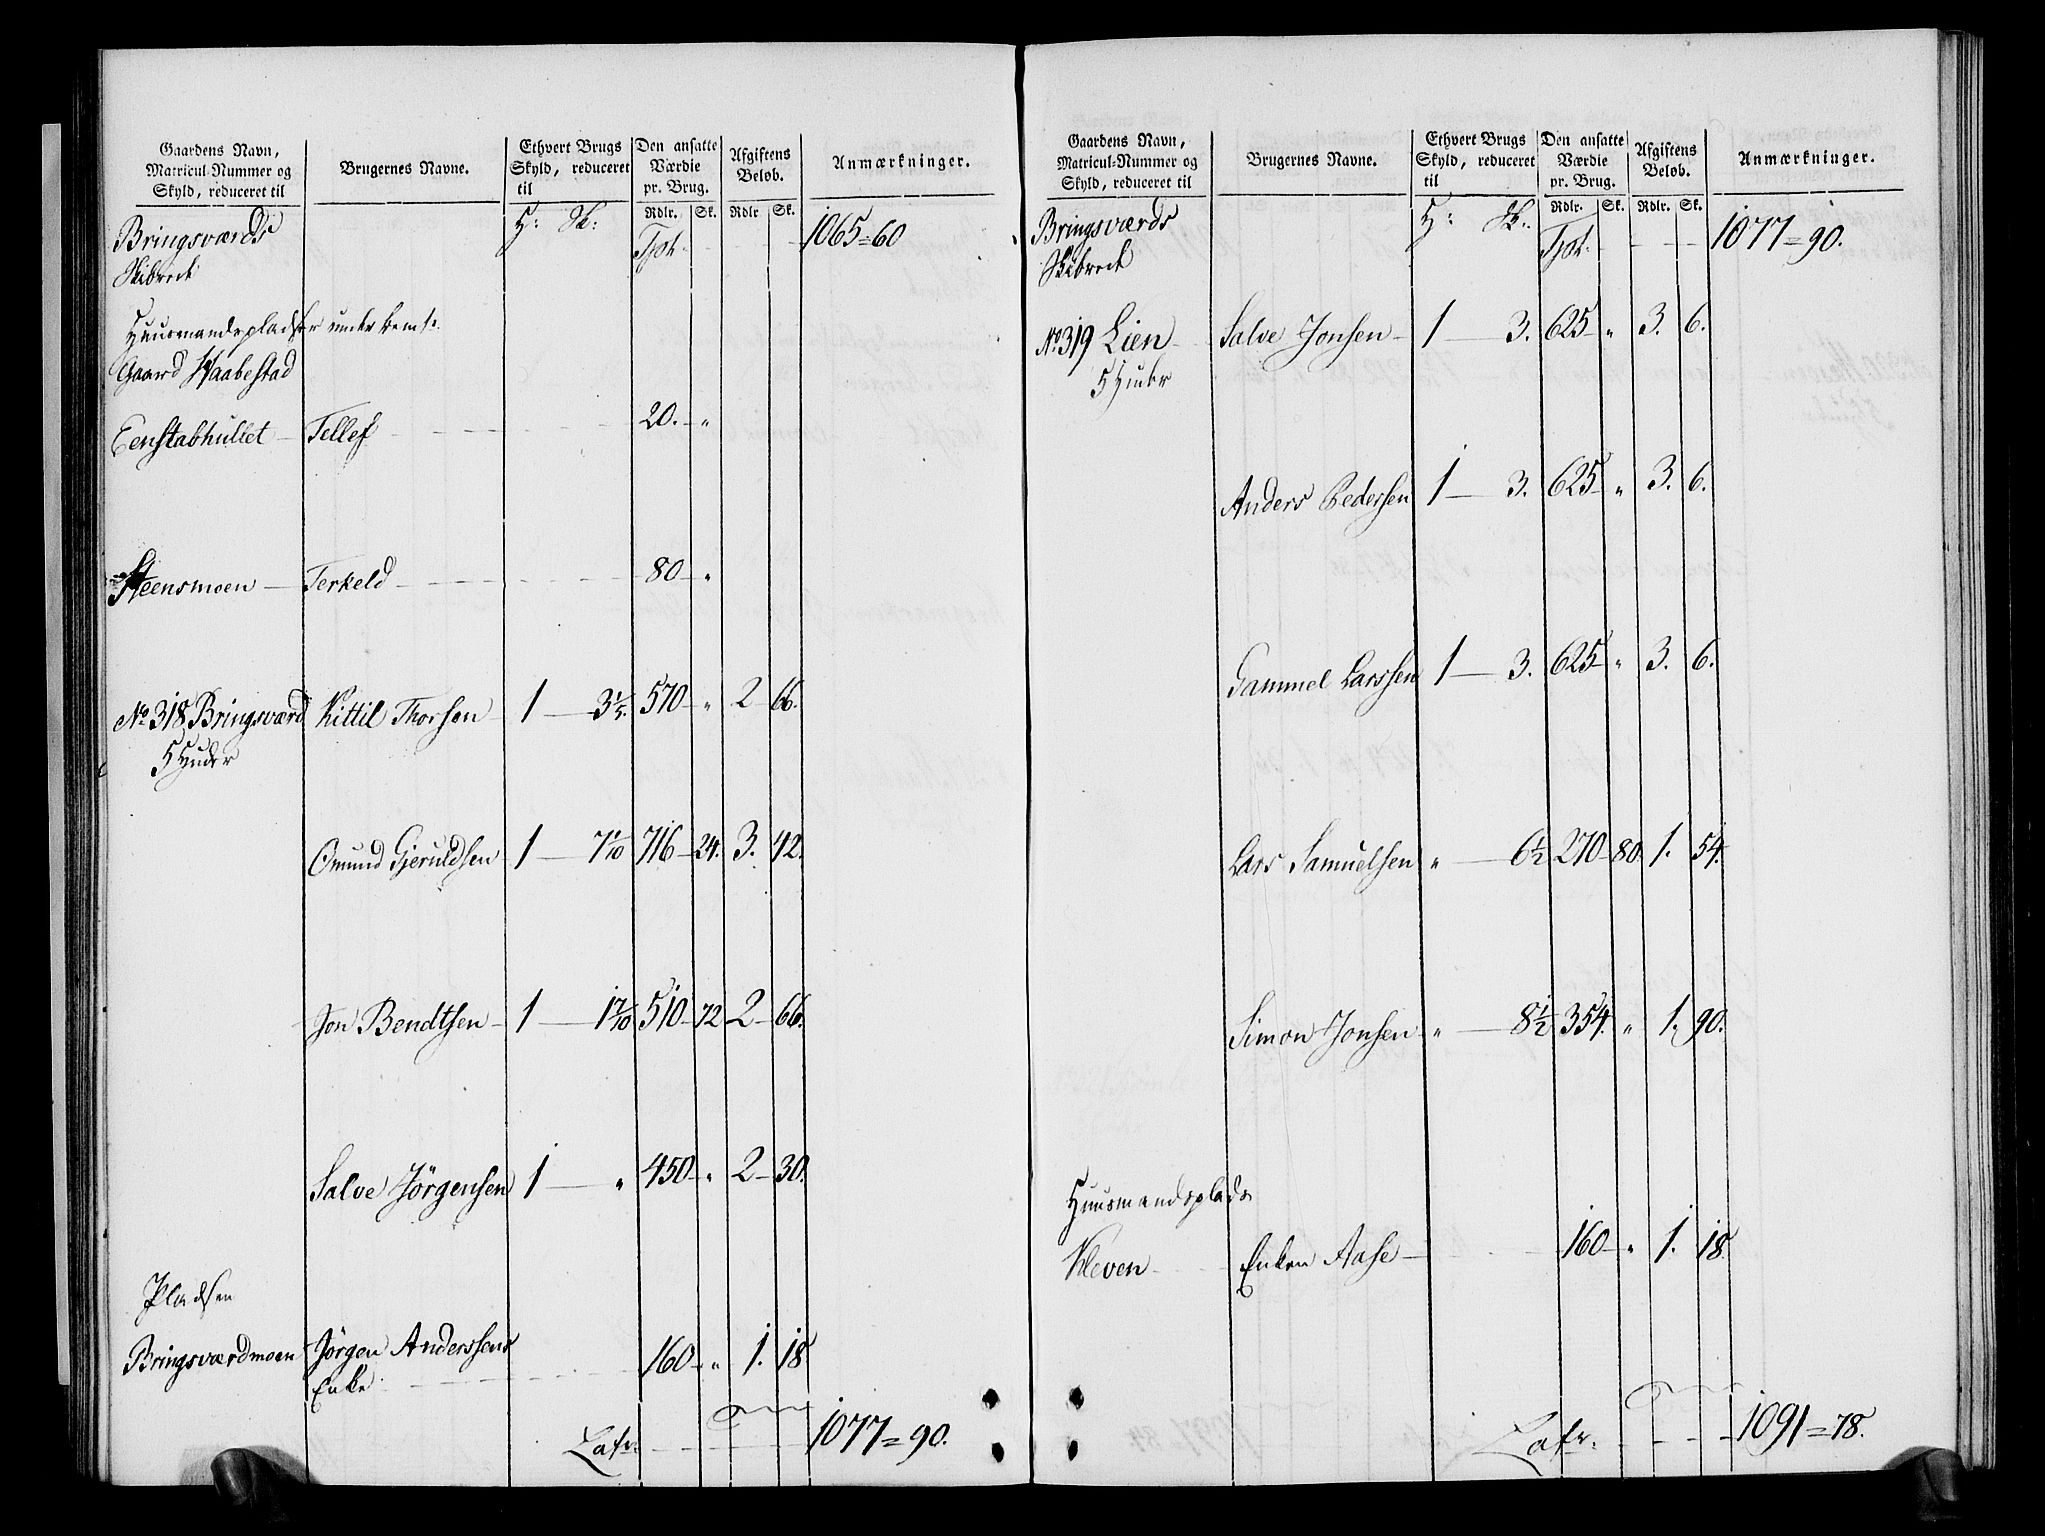 Gaardens Navn, Matricul-Nummer og Skyld, reduceret til | Brugernes Navne. | Ethvert Brugs Skyld, reduceret til | Den ansatte Værdie pr. Brug. | Afgiftens Beløb. | Anmærkninger.
Rdlr. Sk. Rdlr Sk.
Bringsværds H: Sk: Tpt. 1065=60
Skibrede
Huusmandspladser under bem:te
Gaard Waabestad
Eenstabhullet Tellef 20. "
Steensmoen Terkeld 80 "
No 318 Bringsværd Kittil Thorsen 1 3 1/5. 570 " 2 66.
5 Huder
Omund Gjeruldsen 1 7 1/10 716 24. 3. 42.
Jon Bendtsen 1 1 7/10 510 72 2 66.
Salve Jörgensen 1 " 450 " 2 30.
Pladsen
Bringsværdmoen Jörgen Anderssens 160 " 1. 18
Enke
Later: 1077=90.
Gaardens Navn, Matricul-Nummer og Skyld, reduceret til | Brugernes Navne. | Ethvert Brugs Skyld, reduceret til | Den ansatte Værdie pr. Brug. | Afgiftens Beløb. | Anmærkninger.
Rdlr. Sk. Rdlr. Sk.
Bringsværds H: Sk: Tpt. 1077=90.
Skibrede
No 319 Lien Salve Jonsen 1 3. 625 " 3. 6.
5 Huder
Anders Pedersen 1 3. 625 " 3. 6.
Gammel Larssen 1 3. 625 " 3. 6.
Lars Samuelsen " 6 1/2 270 80. 1. 54.
Simon Jonsen " 8 1/2 354. " 1. 90.
Huusmandsplads
Kleven Enken Aase 160 " 1. 18.
Later. 1091=78.